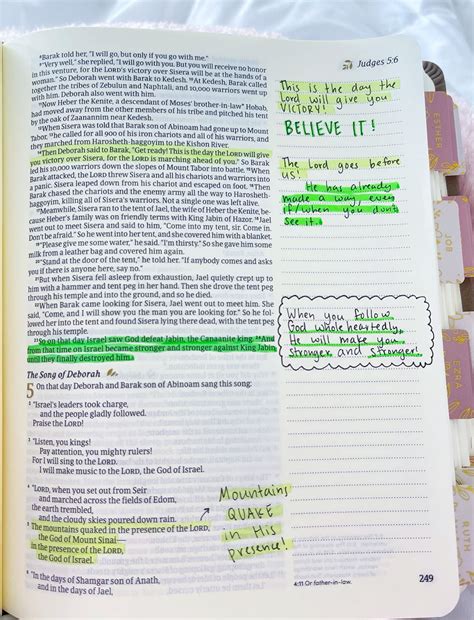 Judges 5:6
⁸Barak told her, "I will go, but only if you go with me."
⁹"Very well," she replied, "I will go with you. But you will receive no honor
in this venture, for the LORD's victory over Sisera will be at the hands of a
woman." So Deborah went with Barak to Kedesh. ¹⁰At Kedesh, Barak called
together the tribes of Zebulun and Naphtali, and 10,000 warriors went up
with him. Deborah also went with him.
¹¹Now Heber the Kenite, a descendant of Moses' brother-in-law* Hobab,
had moved away from the other members of his tribe and pitched his tent
by the oak of Zaanannim near Kedesh.
¹²When Sisera was told that Barak son of Abinoam had gone up to Mount
Tabor, ¹³he called for all 900 of his iron chariots and all of his warriors, and
they marched from Harosheth-haggoyim to the Kishon River.
¹⁴Then Deborah said to Barak, "Get ready! This is the day the LORD will give
you victory over Sisera, for the LORD is marching ahead of you." So Barak
led his 10,000 warriors down the slopes of Mount Tabor into battle. ¹⁵When
Barak attacked, the LORD threw Sisera and all his chariots and warriors into
a panic. Sisera leaped down from his chariot and escaped on foot. ¹⁶Then
Barak chased the chariots and the enemy army all the way to Harosheth-
haggoyim, killing all of Sisera's warriors. Not a single one was left alive.
¹⁷Meanwhile, Sisera ran to the tent of Jael, the wife of Heber the Kenite, be-
cause Heber's family was on friendly terms with King Jabin of Hazor. ¹⁸Jael
went out to meet Sisera and said to him, "Come into my tent, sir. Come in.
Don't be afraid." So he went into her tent, and she covered him with a blanket.
¹⁹"Please give me some water," he said. "I'm thirsty." So she gave him some
milk from a leather bag and covered him again.
²⁰"Stand at the door of the tent," he told her. "If anybody comes and asks
you if there is anyone here, say no."
²¹But when Sisera fell asleep from exhaustion, Jael quietly crept up to
him with a hammer and tent peg in her hand. Then she drove the tent peg
through his temple and into the ground, and so he died.
²²When Barak came looking for Sisera, Jael went out to meet him. She
said, "Come, and I will show you the man you are looking for." So he fol-
lowed her into the tent and found Sisera lying there dead, with the tent peg
through his temple.
²³So on that day Israel saw God defeat Jabin, the Canaanite king. ²⁴And
from that time on Israel became stronger and stronger against King Jabin
until they finally destroyed him.
The Song of Deborah
5 On that day Deborah and Barak son of Abinoam sang this song:
² "Israel's leaders took charge,
and the people gladly followed.
Praise the LORD!
³ "Listen, you kings!
Pay attention, you mighty rulers!
For I will sing to the LORD.
I will make music to the LORD, the God of Israel.
⁴ "LORD, when you set out from Seir
and marched across the fields of Edom,
the earth trembled,
and the cloudy skies poured down rain.
⁵ The mountains quaked in the presence of the LORD,
the God of Mount Sinai—
in the presence of the LORD,
the God of Israel.
⁶ "In the days of Shamgar son of Anath,
and in the days of Jael,
This is the day the
Lord will give you
VICTORY!
BELIEVE IT!
The Lord goes before
us!
He has already
made a way even
if/when you don't
see it.
When you follow
God wholeheartedly,
He will make you
stronger and stronger!
Mountains
QUAKE
in His
presence!
4:11 Or father-in-law.
249
ESTHER
JOB
EZRA